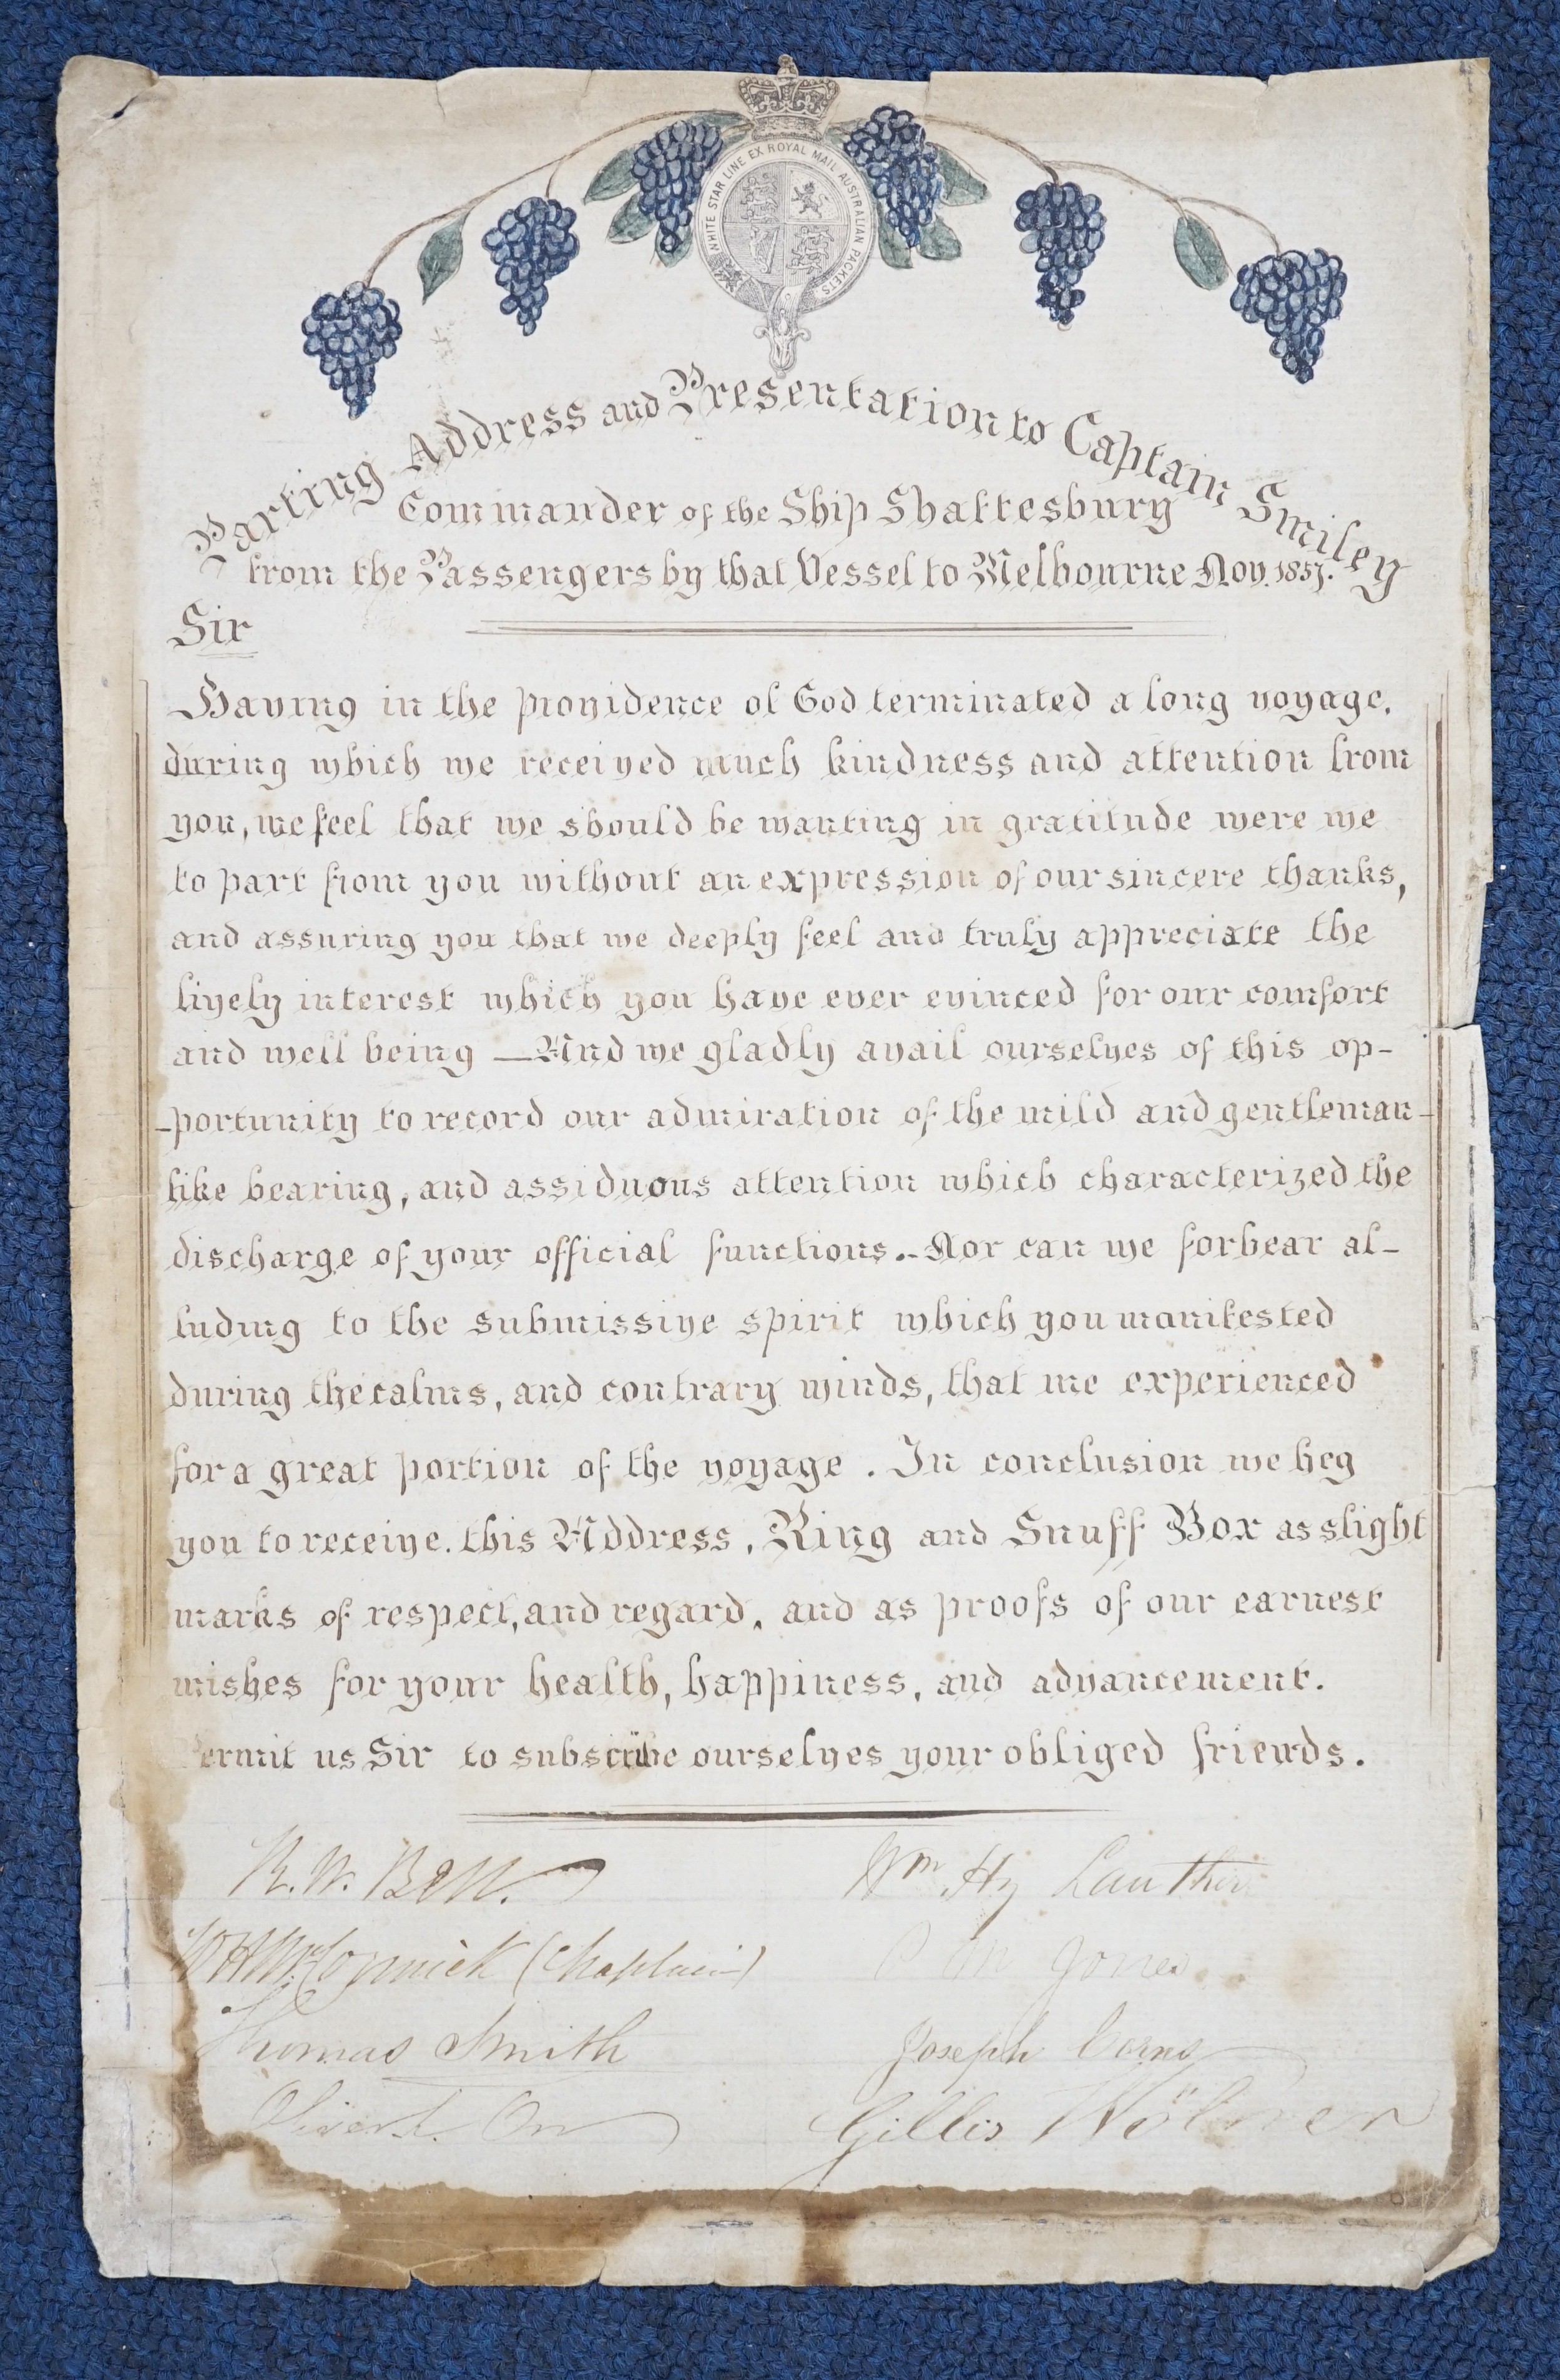 WHITE STAR LINE EX ROYAL MAIL AUSTRALIAN PACKETS
Parting Address and Presentation to Captain Smiley
Commander of the Ship Shaftesbury
from the Passengers by that Vessel to Melbourne Nov. 1857.
Sir
Having in the providence of God terminated a long voyage,
during which we received much kindness and attention from
you, we feel that we should be wanting in gratitude were we
to part from you without an expression of our sincere thanks,
and assuring you that we deeply feel and truly appreciate the
lively interest which you have ever evinced for our comfort
and well being — And we gladly avail ourselves of this op-
-portunity to record our admiration of the mild and gentleman-
like bearing, and assiduous attention which characterized the
discharge of your official functions.- Nor can we forbear al-
luding to the submissive spirit which you manifested
during the calms, and contrary winds, that we experienced
for a great portion of the voyage. In conclusion we beg
you to receive. this Address, Ring and Snuff Box as slight
marks of respect, and regard, and as proofs of our earnest
wishes for your health, happiness, and advancement.
Permit us Sir to subscribe ourselves your obliged friends.
R. W. Bell. Wm Hy
W H McCormick (Chaplain) Jones
Thomas Smith Joseph Corns
Gillis